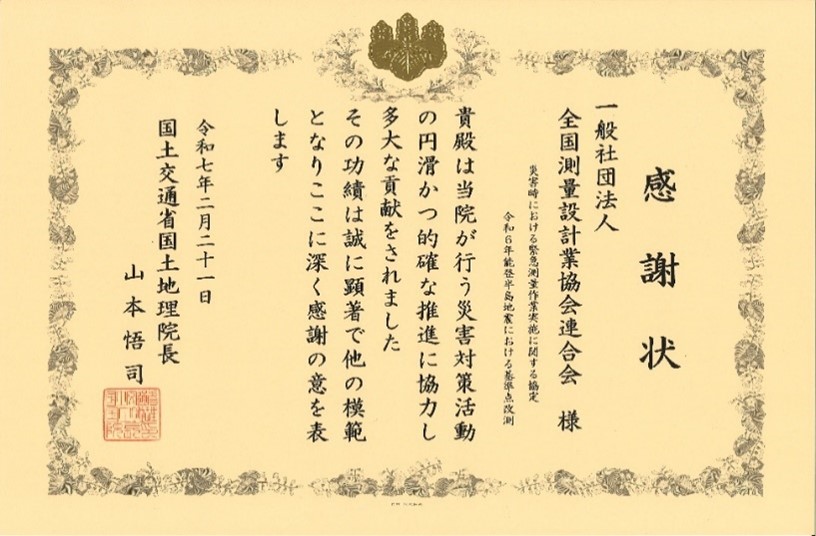 感謝状
一般社団法人
全国測量設計業協会連合会 様
災害時における緊急測量作業実施に関する協定
令和6年能登半島地震における基準点改測
貴殿は当院が行う災害対策活動
の円滑かつ的確な推進に協力し
多大な貢献をされました
その功績は誠に顕著で他の模範
となりここに深く感謝の意を表
します
令和七年二月二十一日
国土交通省国土地理院長
山本悟司